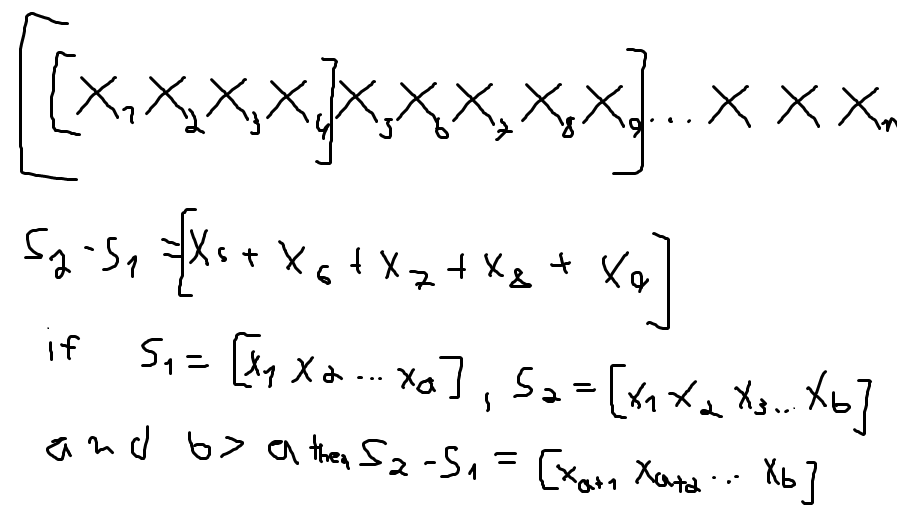 [[X₁ X₂ X₃ X₄] X₅ X₆ X₇ X₈ X₉] ... X X Xₙ
S₂ - S₁ = [X₅ + X₆ + X₇ + X₈ + X₉]
if S₁ = [x₁ x₂ ... xₐ], S₂ = [x₁ x₂ x₃ ... x_b]
and b > a then S₂ - S₁ = [xₐ₊₁ xₐ₊₂ ... x_b]